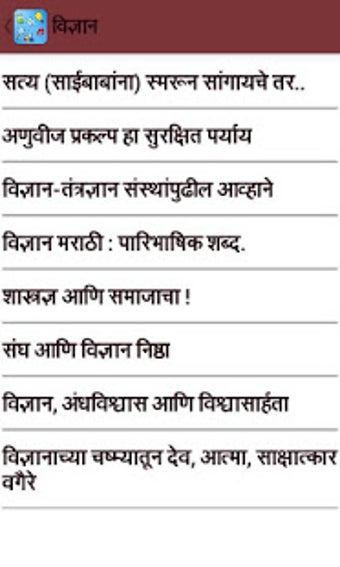 विज्ञान
सत्य (साईबाबांना) स्मरून सांगायचे तर..
अणुवीज प्रकल्प हा सुरक्षित पर्याय
विज्ञान-तंत्रज्ञान संस्थांपुढील आव्हाने
विज्ञान मराठी : पारिभाषिक शब्द.
शास्त्रज्ञ आणि समाजाचा !
संघ आणि विज्ञान निष्ठा
विज्ञान, अंधविश्वास आणि विश्वासार्हता
विज्ञानाच्या चष्म्यातून देव, आत्मा, साक्षात्कार
वगैरे